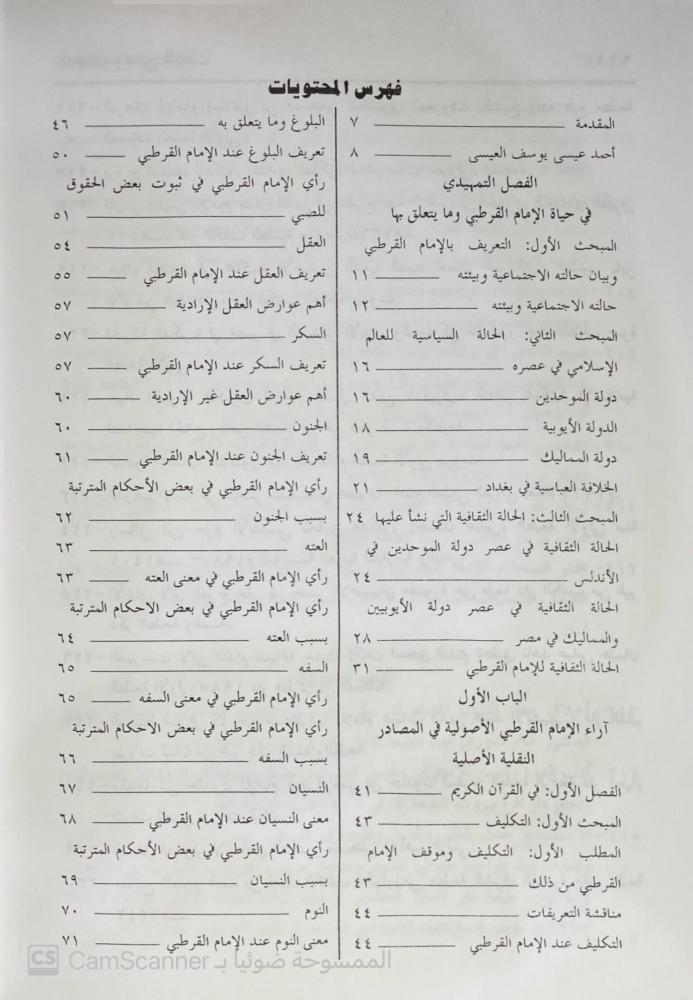 فهرس المحتويات
المقدمة ٧
أحمد عيسى يوسف العيسى ٨
الفصل التمهيدي
في حياة الإمام القرطبي وما يتعلق بها
المبحث الأول: التعريف بالإمام القرطبي
وبيان حالته الاجتماعية وبيئته ١١
حالته الاجتماعية وبيئته ١٢
المبحث الثاني: الحالة السياسية للعالم
الإسلامي في عصره ١٦
دولة الموحدين ١٦
الدولة الأيوبية ١٨
دولة المماليك ١٩
الخلافة العباسية في بغداد ٢١
المبحث الثالث: الحالة الثقافية التي نشأ عليها ٢٤
الحالة الثقافية في عصر دولة الموحدين في
الأندلس ٢٤
الحالة الثقافية في عصر دولة الأيوبيين
والمماليك في مصر ٢٨
الحالة الثقافية للإمام القرطبي ٣١
الباب الأول
آراء الإمام القرطبي الأصولية في المصادر
النقلية الأصلية
الفصل الأول: في القرآن الكريم ٤١
المبحث الأول: التكليف ٤٣
المطلب الأول: التكليف وموقف الإمام
القرطبي من ذلك ٤٣
مناقشة التعريفات ٤٤
التكليف عند الإمام القرطبي ٤٤
البلوغ وما يتعلق به ٤٦
تعريف البلوغ عند الإمام القرطبي ٥٠
رأي الإمام القرطبي في ثبوت بعض الحقوق
للصبي ٥١
العقل ٥٤
تعريف العقل عند الإمام القرطبي ٥٥
أهم عوارض العقل الإرادية ٥٧
السكر ٥٧
تعريف السكر عند الإمام القرطبي ٥٧
أهم عوارض العقل غير الإرادية ٦٠
الجنون ٦٠
تعريف الجنون عند الإمام القرطبي ٦١
رأي الإمام القرطبي في بعض الأحكام المترتبة
بسبب الجنون ٦٢
العته ٦٣
رأي الإمام القرطبي في معنى العته ٦٣
رأي الإمام القرطبي في بعض الاحكام المترتبة
بسبب العته ٦٤
السفه ٦٥
رأي الإمام القرطبي في معنى السفه ٦٥
رأي الإمام القرطبي في بعض الاحكام المترتبة
بسبب السفه ٦٦
النسيان ٦٧
معنى النسيان عند الإمام القرطبي ٦٨
رأي الإمام القرطبي في بعض الأحكام المترتبة
بسبب النسيان ٦٩
النوم ٧٠
معنى النوم عند الإمام القرطبي ٧١
CS CamScanner الممسوحة ضوئيا بـ